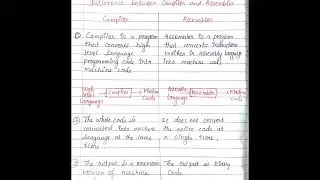 Difference between Compiler and Assembler
Compiler
Assembler
① Compiler is a program
that converts high
level language
programming code into
machine code
Assembler is a program
that converts
written in assembly language
into machine code
High
level
Language
Compiler
Machine
Code
Language
Assembler
Machine
Code
② The whole code is
converted into machine
language at the same
time
It does not convert
the entire code at
a single time.
③ The output is a mnemonic
version of machine
The output is binary
Code.